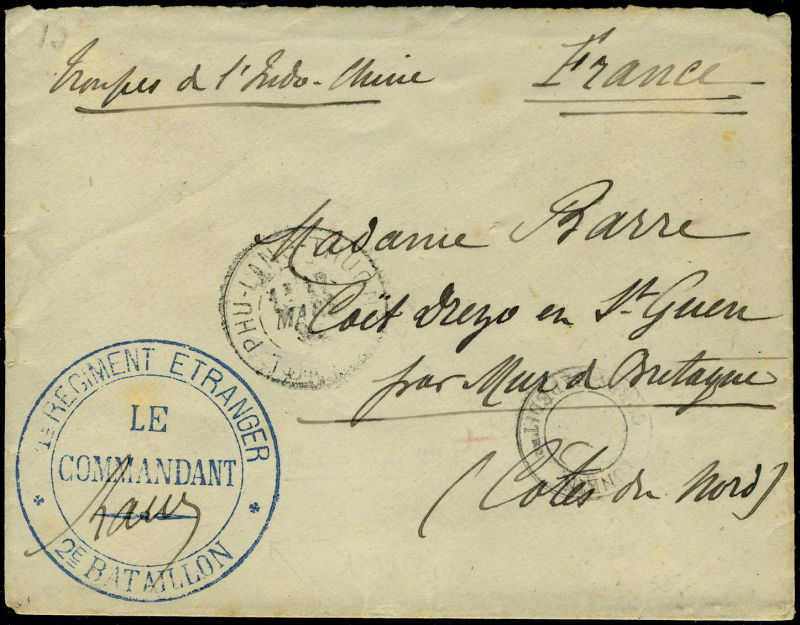 Troupes de l'Indo-Chine
France
Madame Barre
Coët drezo en St Guen
par Mur de Bretagne
(Côtes du Nord)
PHU-LANG-THUONG
MAI
1ER REGIMENT ETRANGER
LE
COMMANDANT
2E BATAILLON